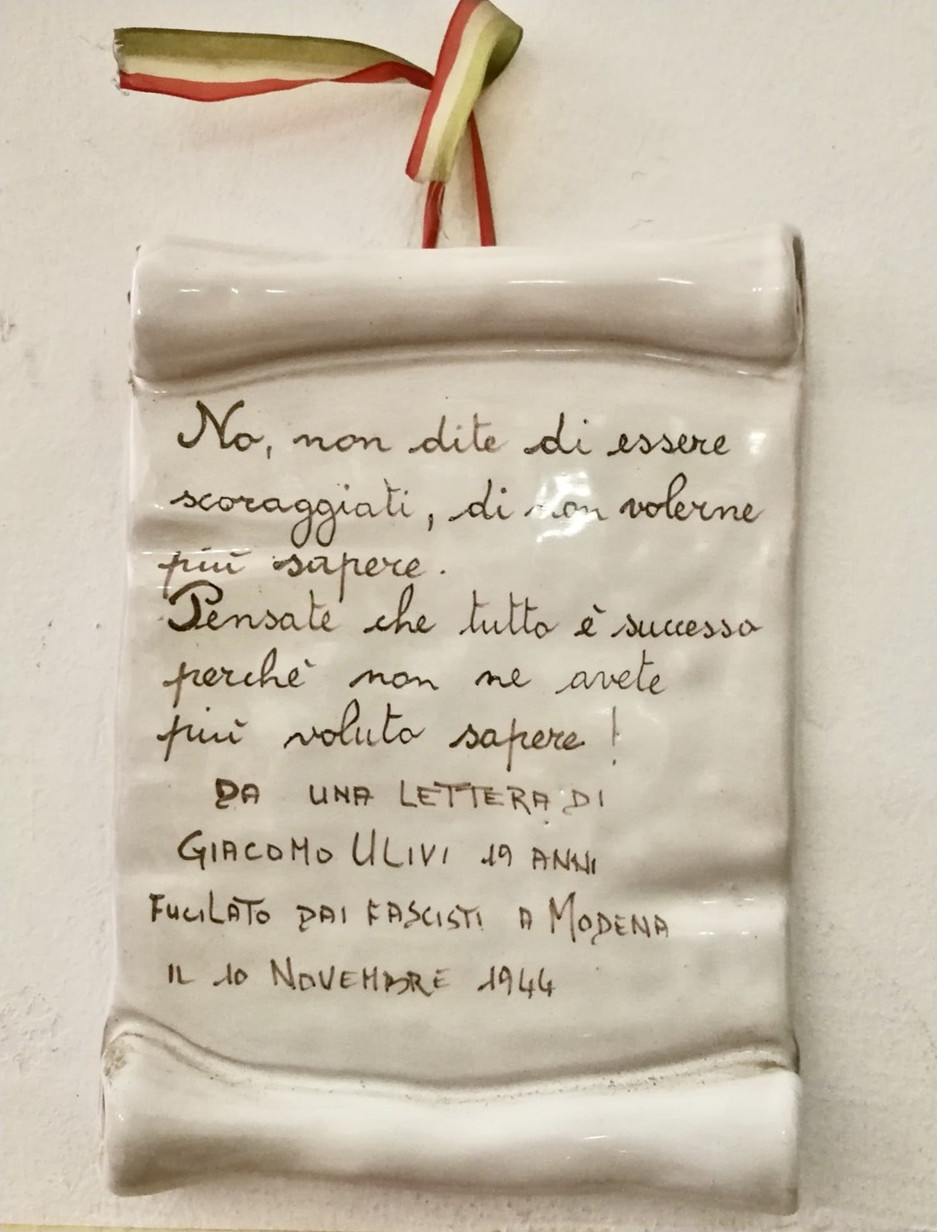 No, non dite di essere
scoraggiati, di non volerne
più sapere.
Pensate che tutto è successo
perchè non ne avete
più voluto sapere!
DA UNA LETTERA DI
GIACOMO ULIVI 19 ANNI
FUCILATO DAI FASCISTI A MODENA
IL 10 NOVEMBRE 1944